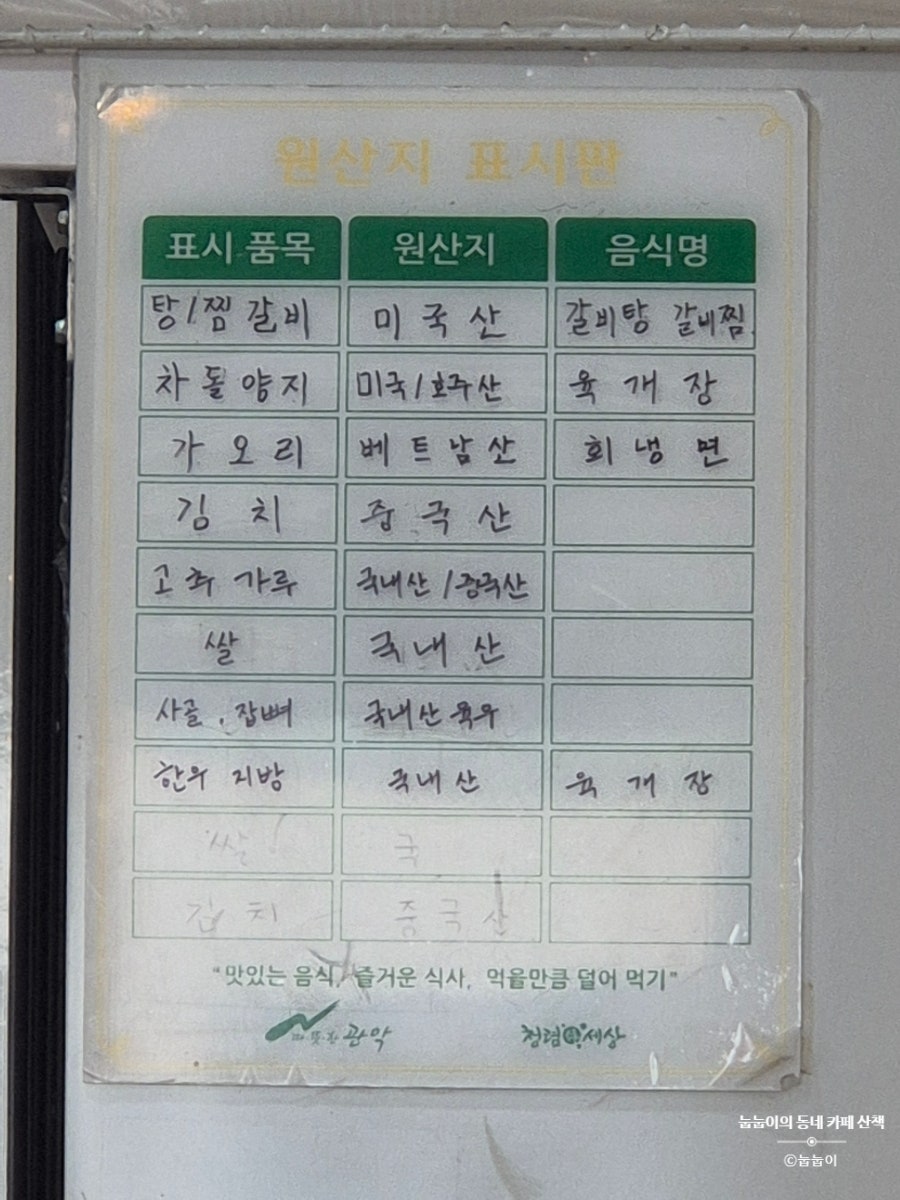 원산지 표시판
표시 품목 원산지 음식명
탕/찜 갈비 미국산 갈비탕 갈비찜
차돌양지 미국/호주산 육개장
가오리 베트남산 회냉면
김치 중국산
고추가루 국내산/중국산
쌀 국내산
사골, 잡뼈 국내산 육우
한우 지방 국내산 육개장
쌀 국
김치 중국산
"맛있는 음식, 즐거운 식사, 먹을만큼 덜어 먹기"
관악 청렴 세상
눕눕이의 동네 카페 산책
©눕눕이